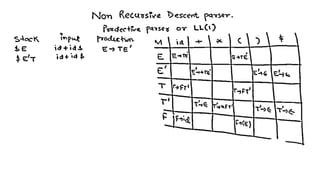 Non Recursive Descent parser.
Predective parser or LL(1)
Stack input Production
$E id+id$ E→TE'
$E'T id+id$
M id + * ( ) $
E E→TE' E→TE'
E' E'→+TE' E'→ε E'→ε
T T→FT' T→FT'
T' T'→ε T'→*FT' T'→ε T'→ε
F F→id F→(E)